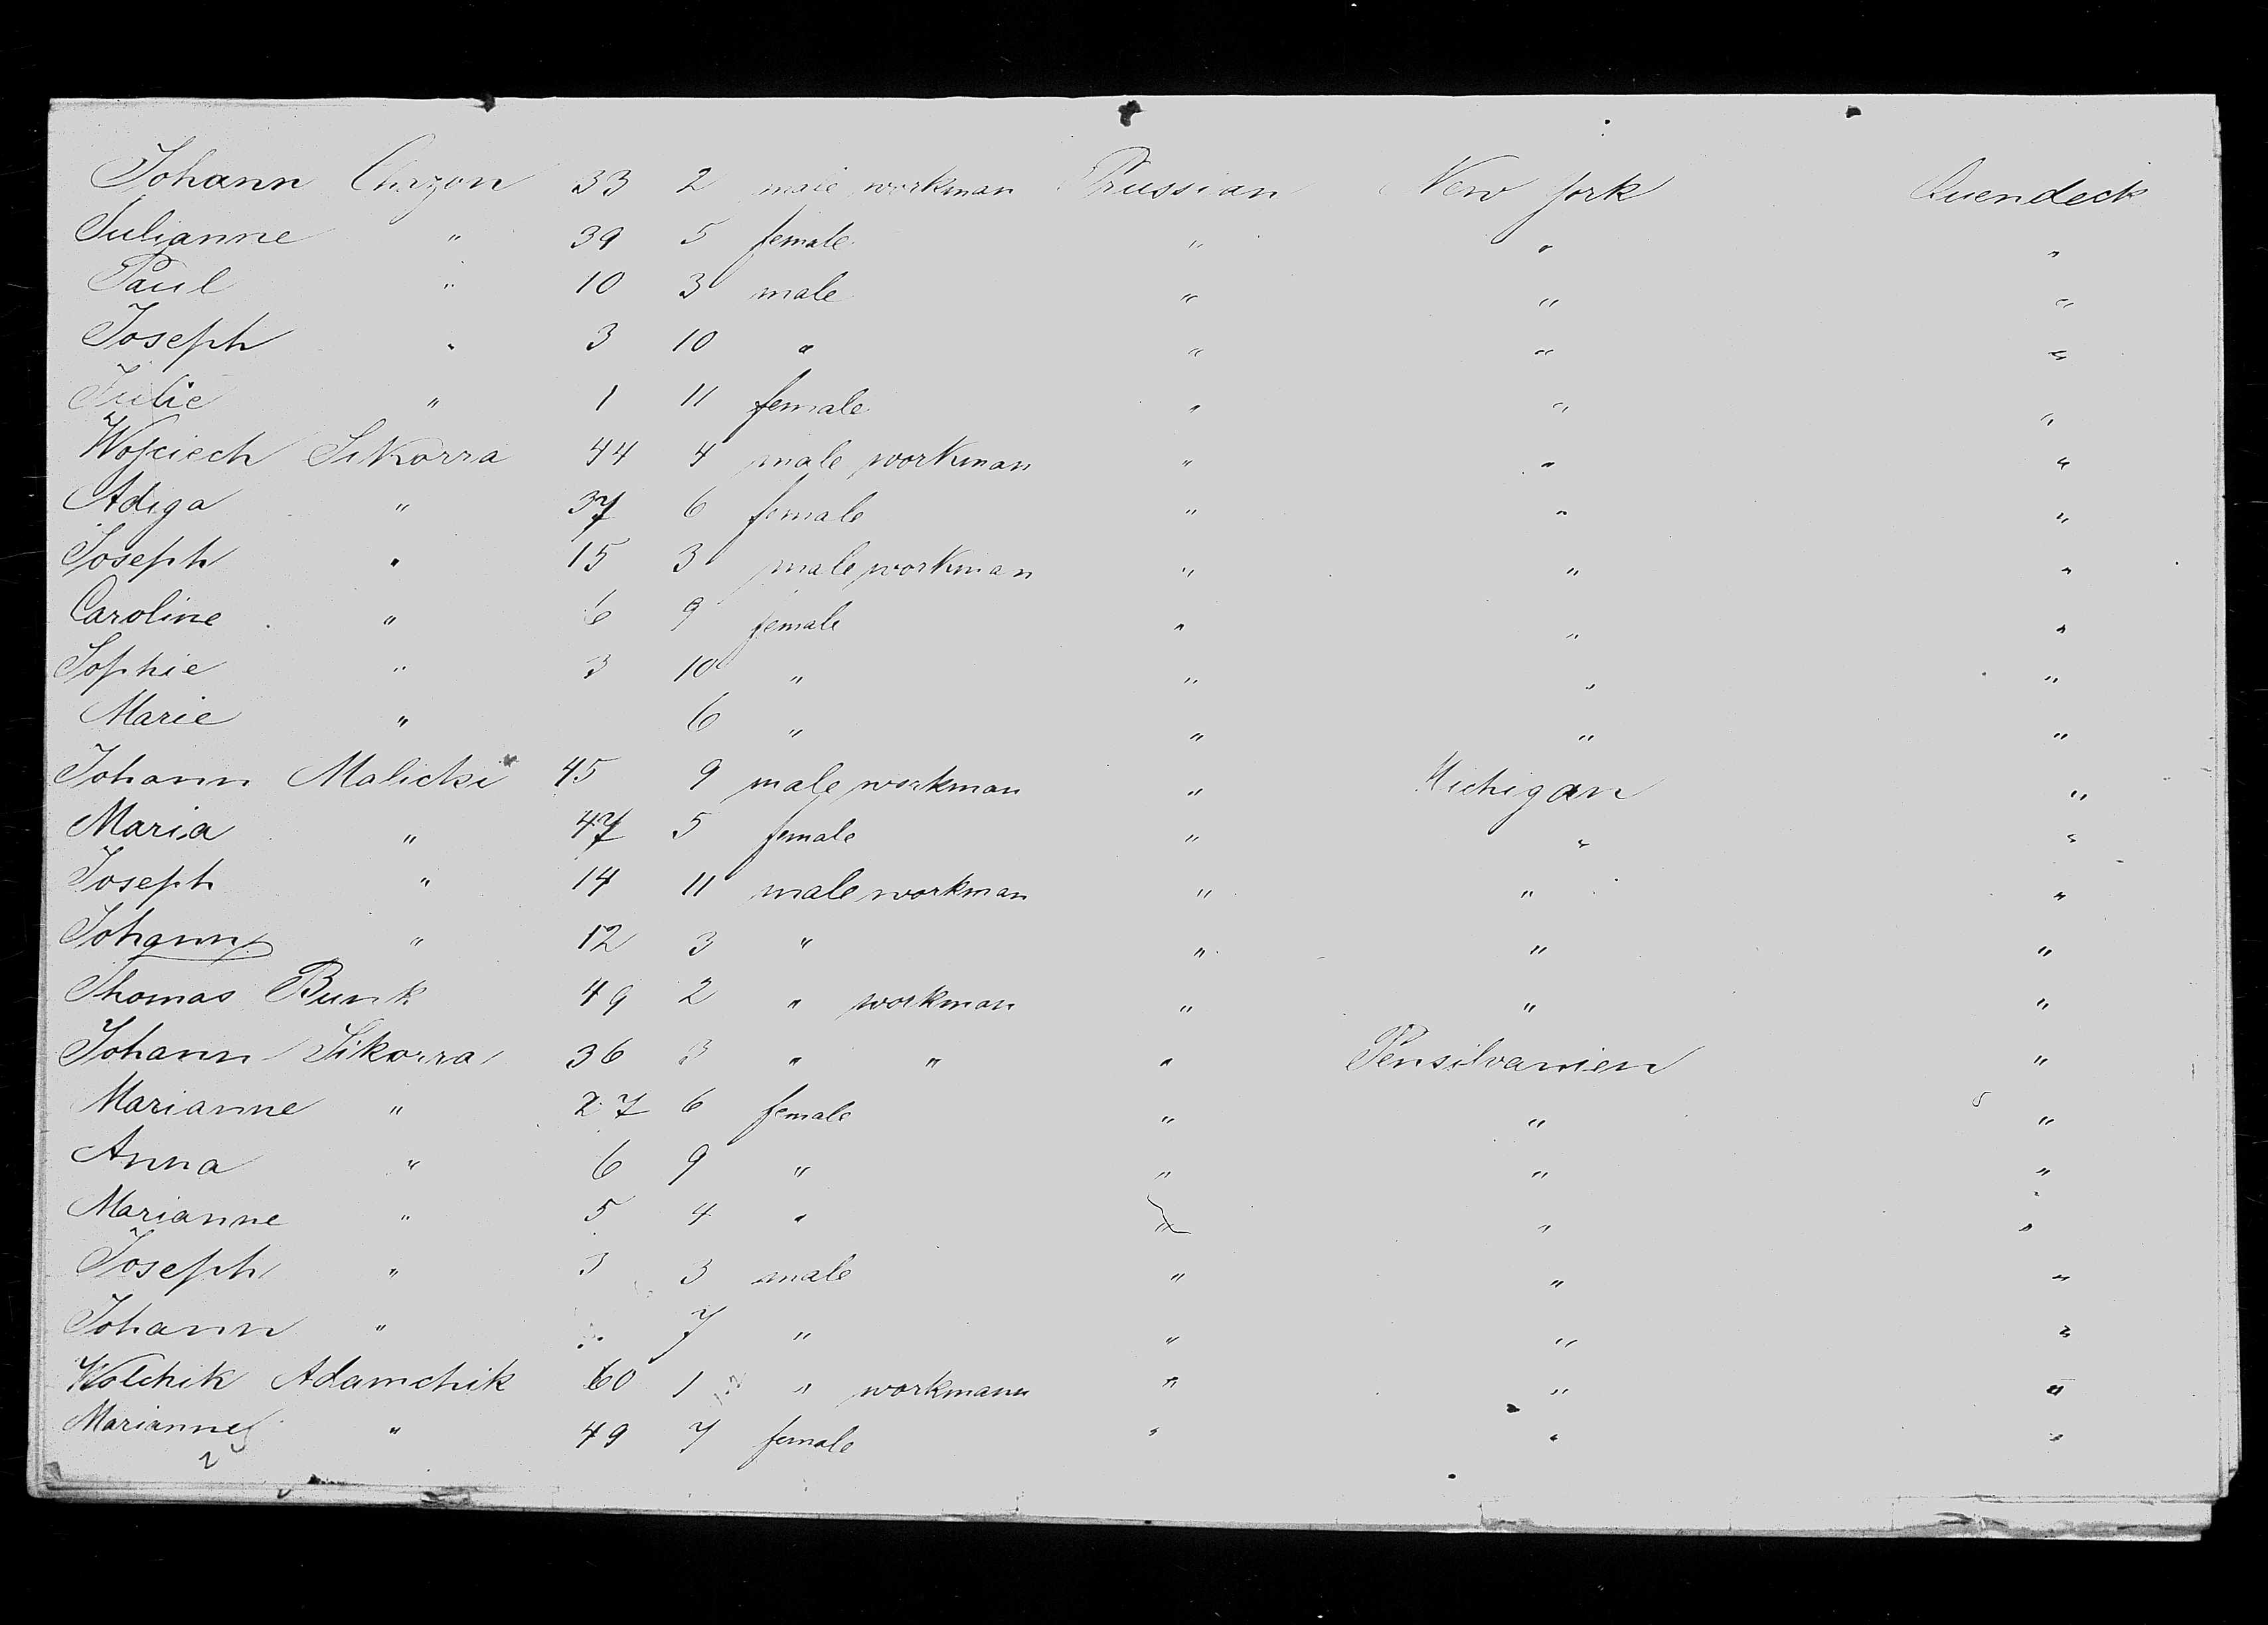 Johann Chazon 33 2 male workman Prussian New York Quendeck
Julianne " 39 5 female " " "
Paul " 10 3 male " " "
Joseph " 3 10 " " " "
Julie " 1 11 female " " "
Wojciech Sikorra 44 4 male workman " " "
Adiga " 37 6 female " " "
Joseph " 15 3 male workman " " "
Caroline " 6 9 female " " "
Sophie " 3 10 " " " "
Marie " 6 " " " "
Johann Malicki 45 9 male workman " Michigan "
Maria " 47 5 female " " "
Joseph " 14 11 male workman " " "
Johann " 12 3 " " " "
Thomas Bunk 49 2 " workman " " "
Johann Sikorra 36 3 " " " Pensilvanien "
Marianne " 27 6 female " " "
Anna " 6 9 " " " "
Marianne " 5 4 " " " "
Joseph " 3 3 male " " "
Johann " 7 " " " "
Wolchik Adamchik 60 1 " workmann " " "
Marianne " 49 7 female " " "
2